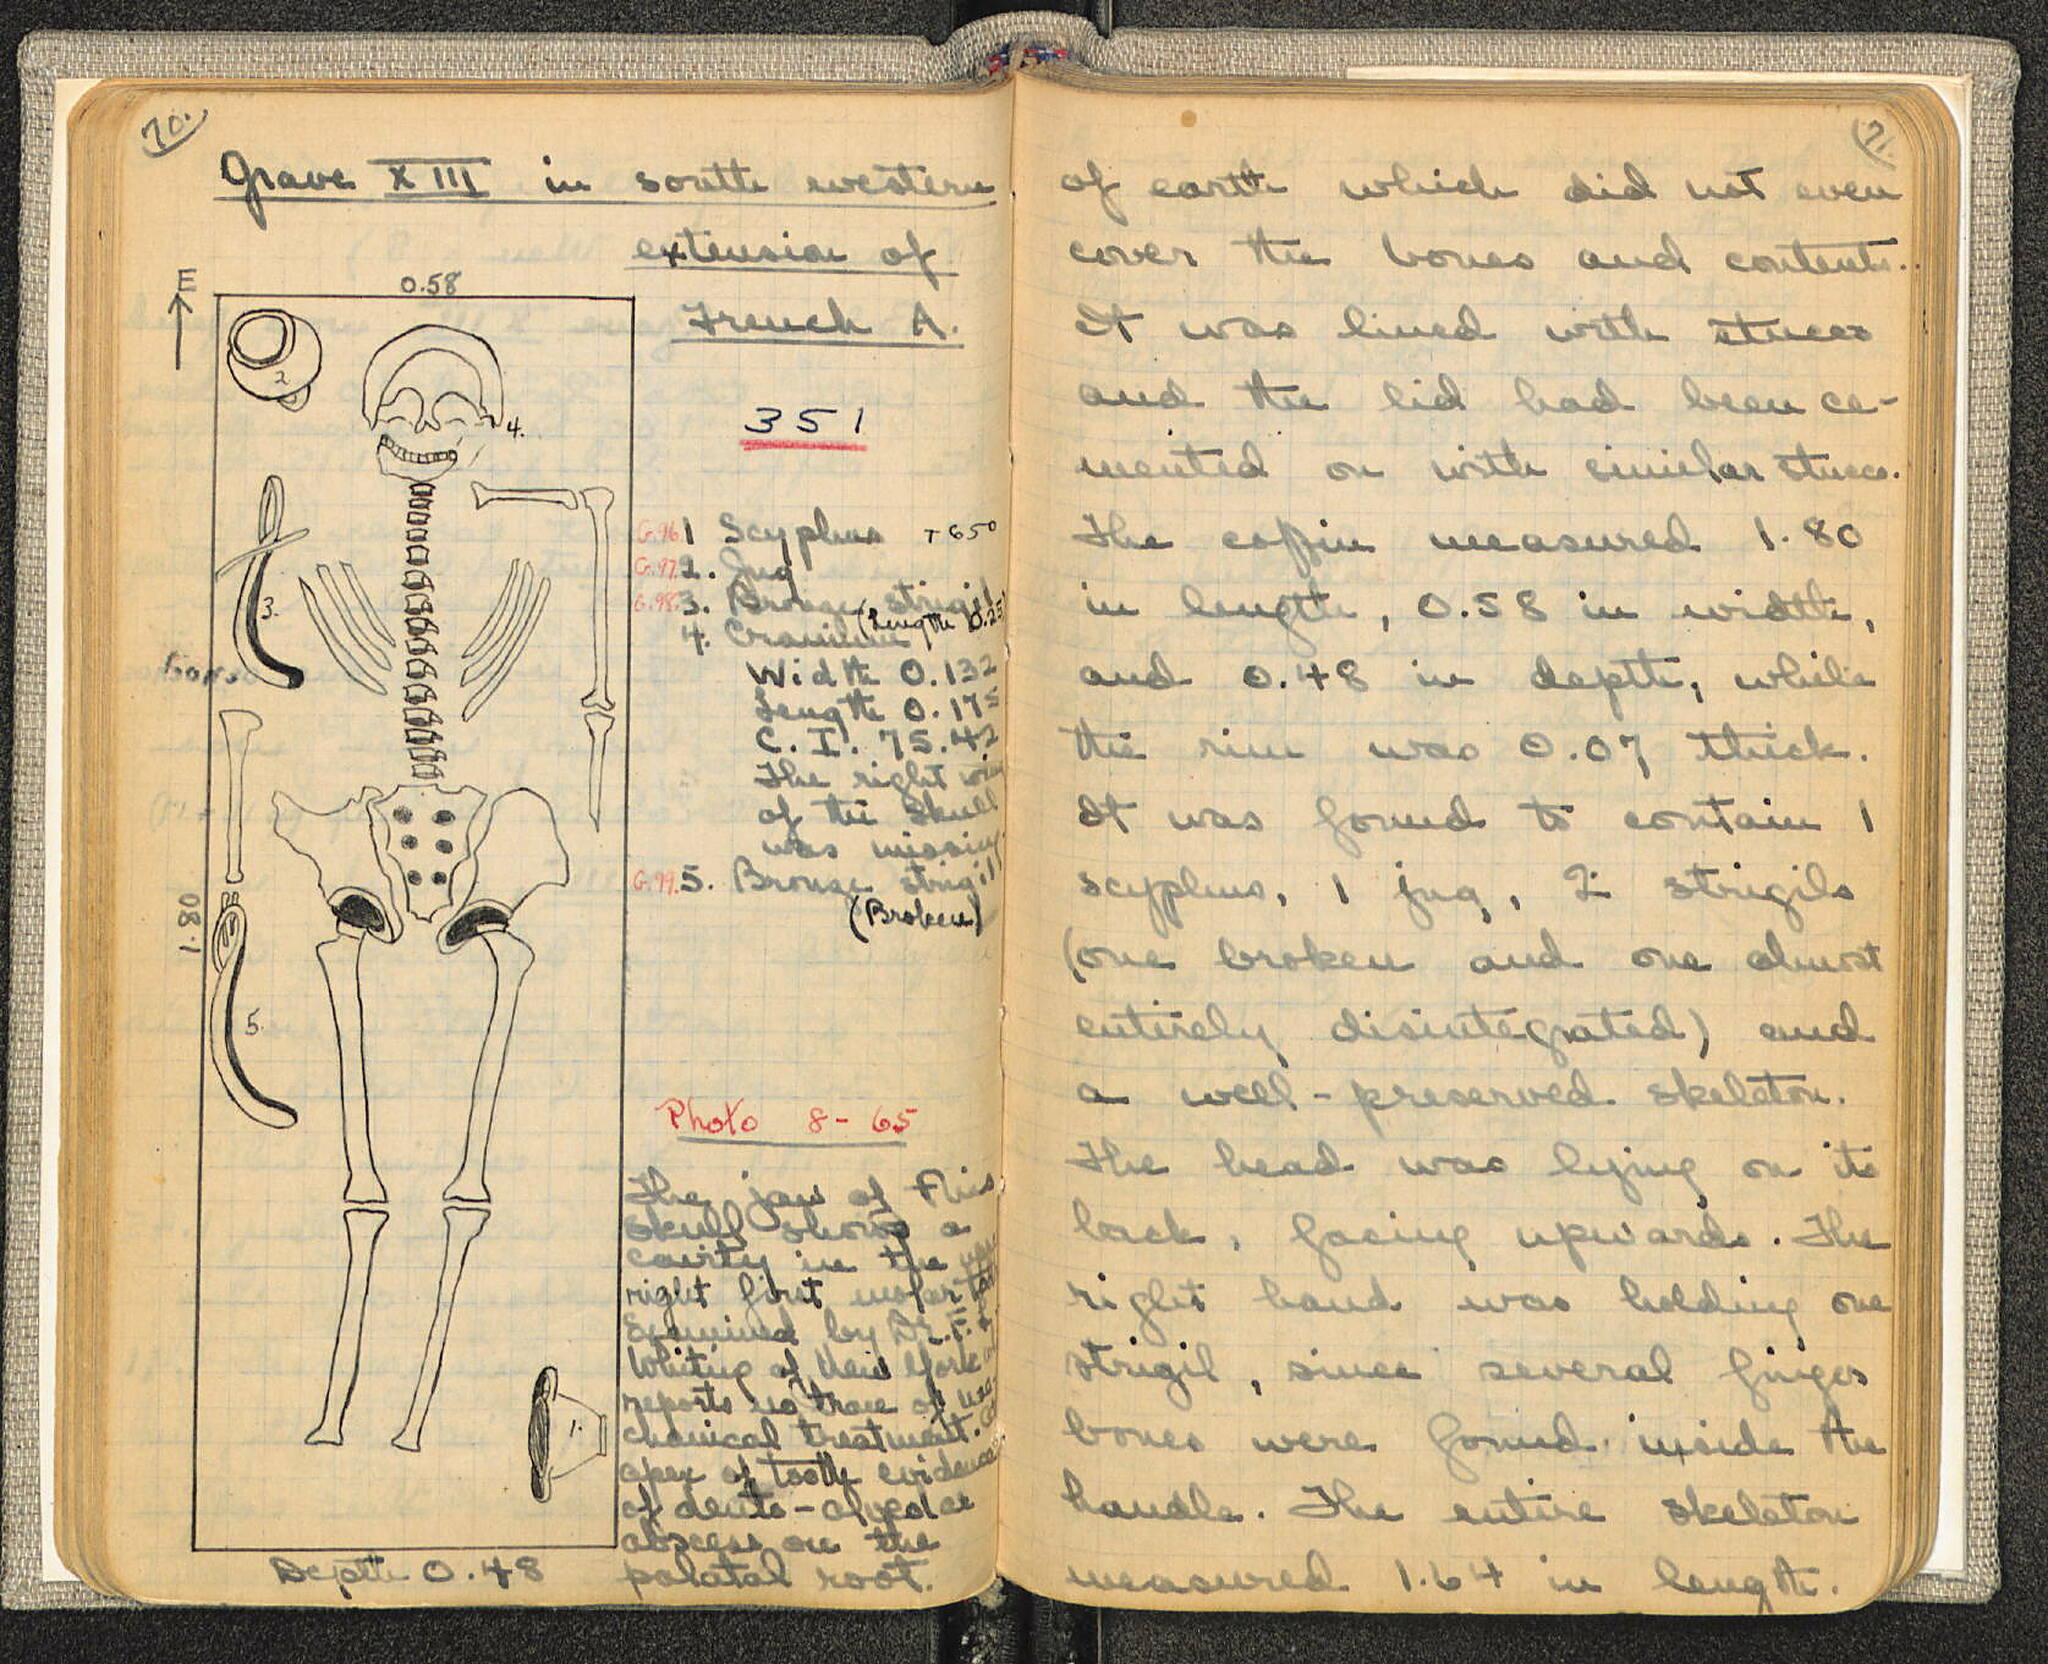 70.
Grave XIII in south western
extension of
Trench A.
E
0.58
351
2
4.
G.96. 1 Scyphus T 650
G.97. 2. Jug
G.98. 3. Bronze strigil
(Length 0.25
4. Cranium
Width 0.132
Length 0.175
C. I. 75.42
The right
of the skull
was missing
G.99. 5. Bronze strigil
(Broken)
3.
1.80
5.
1.
Photo 8-65
The jaw of this
skull shows a
cavity in the
right first molar
by Dr. F.
Whiting of New York
reports no trace of me-
chanical treatment.
apex of tooth evidence
of dento-alveolar
abscess on the
palatal root.
Depth 0.48
71.
of earth which did not even
cover the bones and contents.
It was lined with stucco
and the lid had been ce-
mented on with similar stucco.
The coffin measured 1.80
in length, 0.58 in width,
and 0.48 in depth, while
the rim was 0.07 thick.
It was found to contain 1
scyphus, 1 jug, 2 strigils
(one broken and one almost
entirely disintegrated) and
a well-preserved skeleton.
The head was lying on its
back, facing upwards. The
right hand was holding one
strigil, since several finger
bones were found inside the
handle. The entire skeleton
measured 1.64 in length.